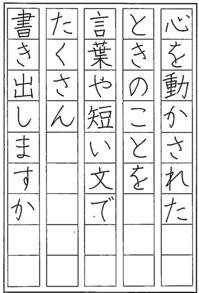 心を動かされた
ときのことを
言葉や短い文で
たくさん
書き出しますか